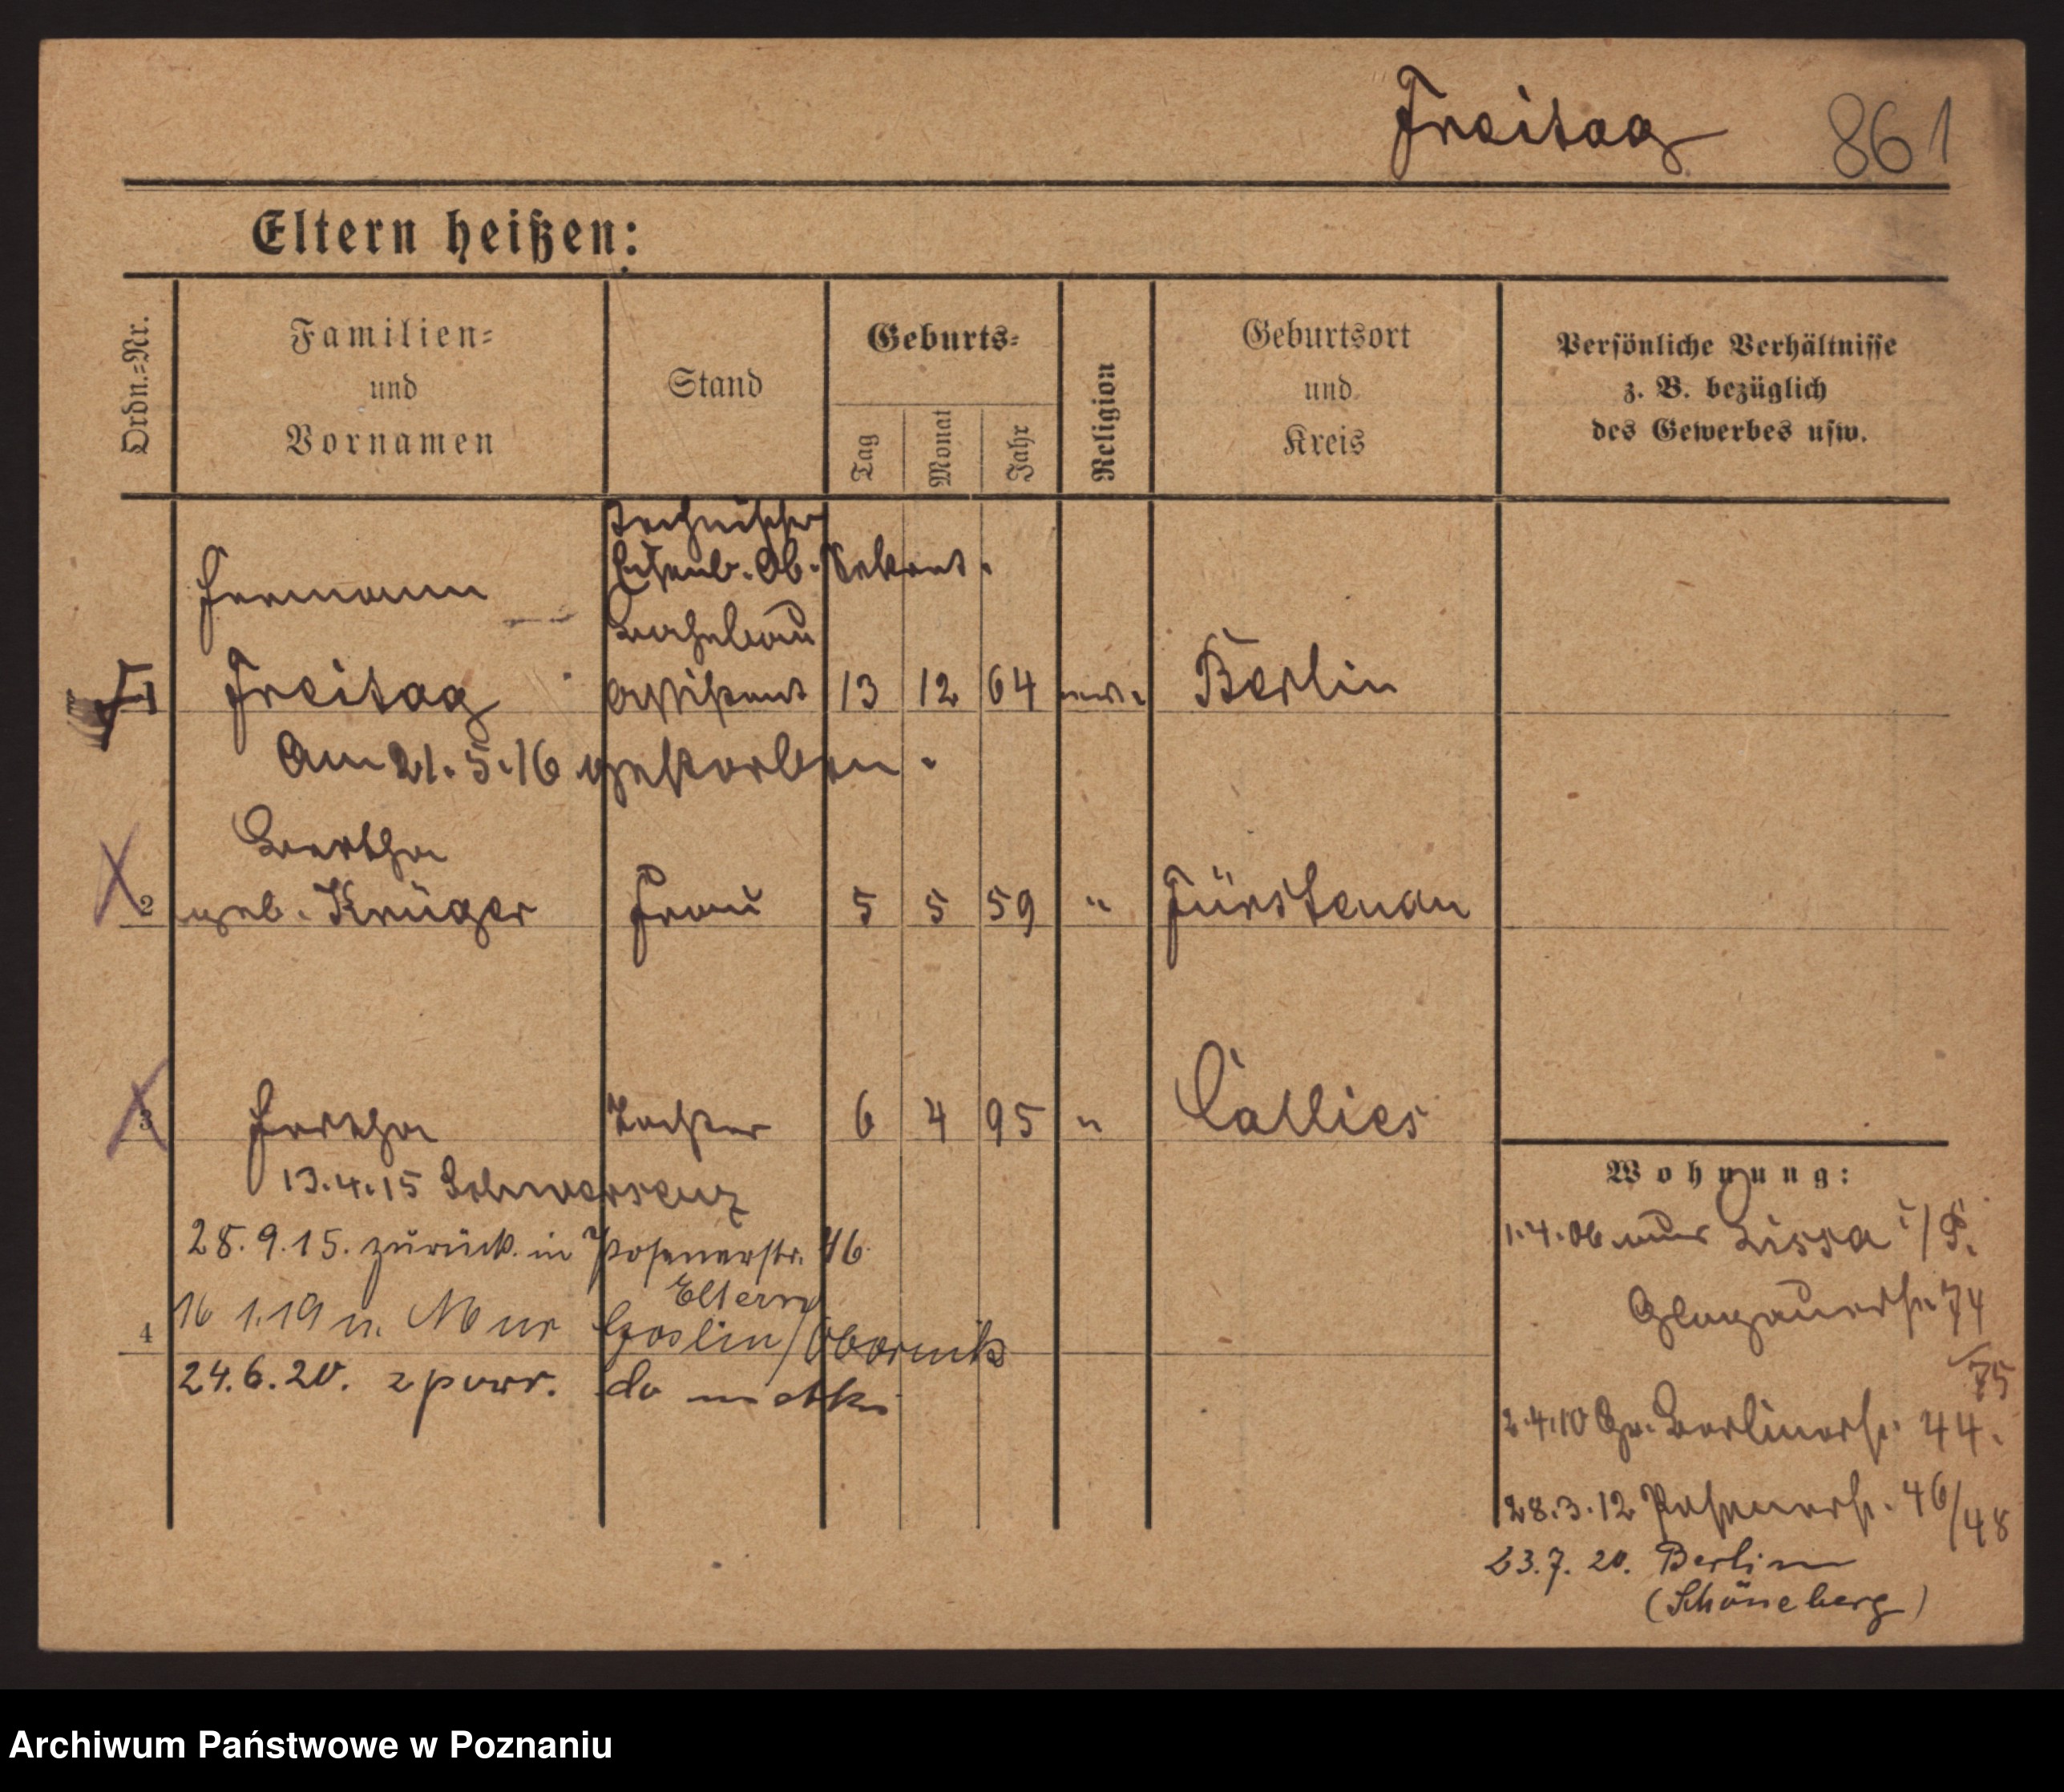 Freitag 861
Eltern heißen:
Ordn.-Nr.
Familien-
und
Vornamen
Stand
Geburts-
Tag
Monat
Jahr
Religion
Geburtsort
und
Kreis
Persönliche Verhältnisse
z. B. bezüglich
des Gewerbes usw.
Technischer
Eisenb. Ob. Sekret.
Hermann
Bahnbau
1 Freitag Assistent 13 12 64 ev. Berlin
Am 21.5.16 gestorben.
Bertha
2 geb. Krüger Frau 5 5 59 " Fürstenau
3 Hertha Tochter 6 4 95 " Callies
13.4.15 Schwersenz
28.9.15. zurück in Posenerstr. 46
Eltern
4 16 1.19 n. Goslin/Obornik
24.6.20. z powr. do matki
Wohnung:
1.4.06 aus Lissa i/P.
Glogauerstr. 74
75
2.4.10 Gr. Berlinerstr. 44.
28.3.12 Posenerstr. 46/48
23.7.20. Berlin
(Schöneberg)
Archiwum Państwowe w Poznaniu